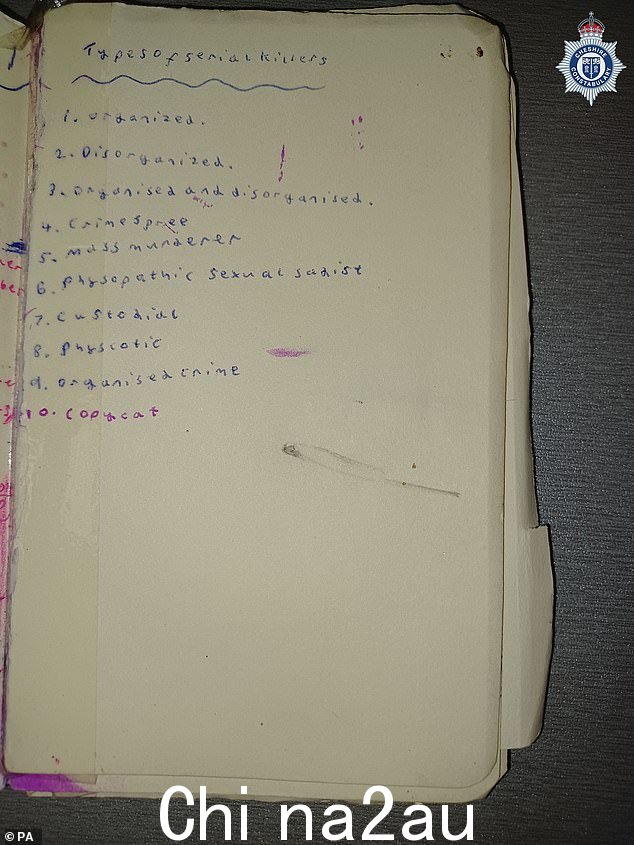 Types of serial killers
1. organized.
2. Disorganized.
3. organised and disorganised.
4. Crime spree
5. mass murderer
6. Physopathic sexual sadist
7. Custodial
8. Physcotic
9. organised crime
10. Copycat
CHESHIRE CONSTABULARY
© PA
Chi na2au